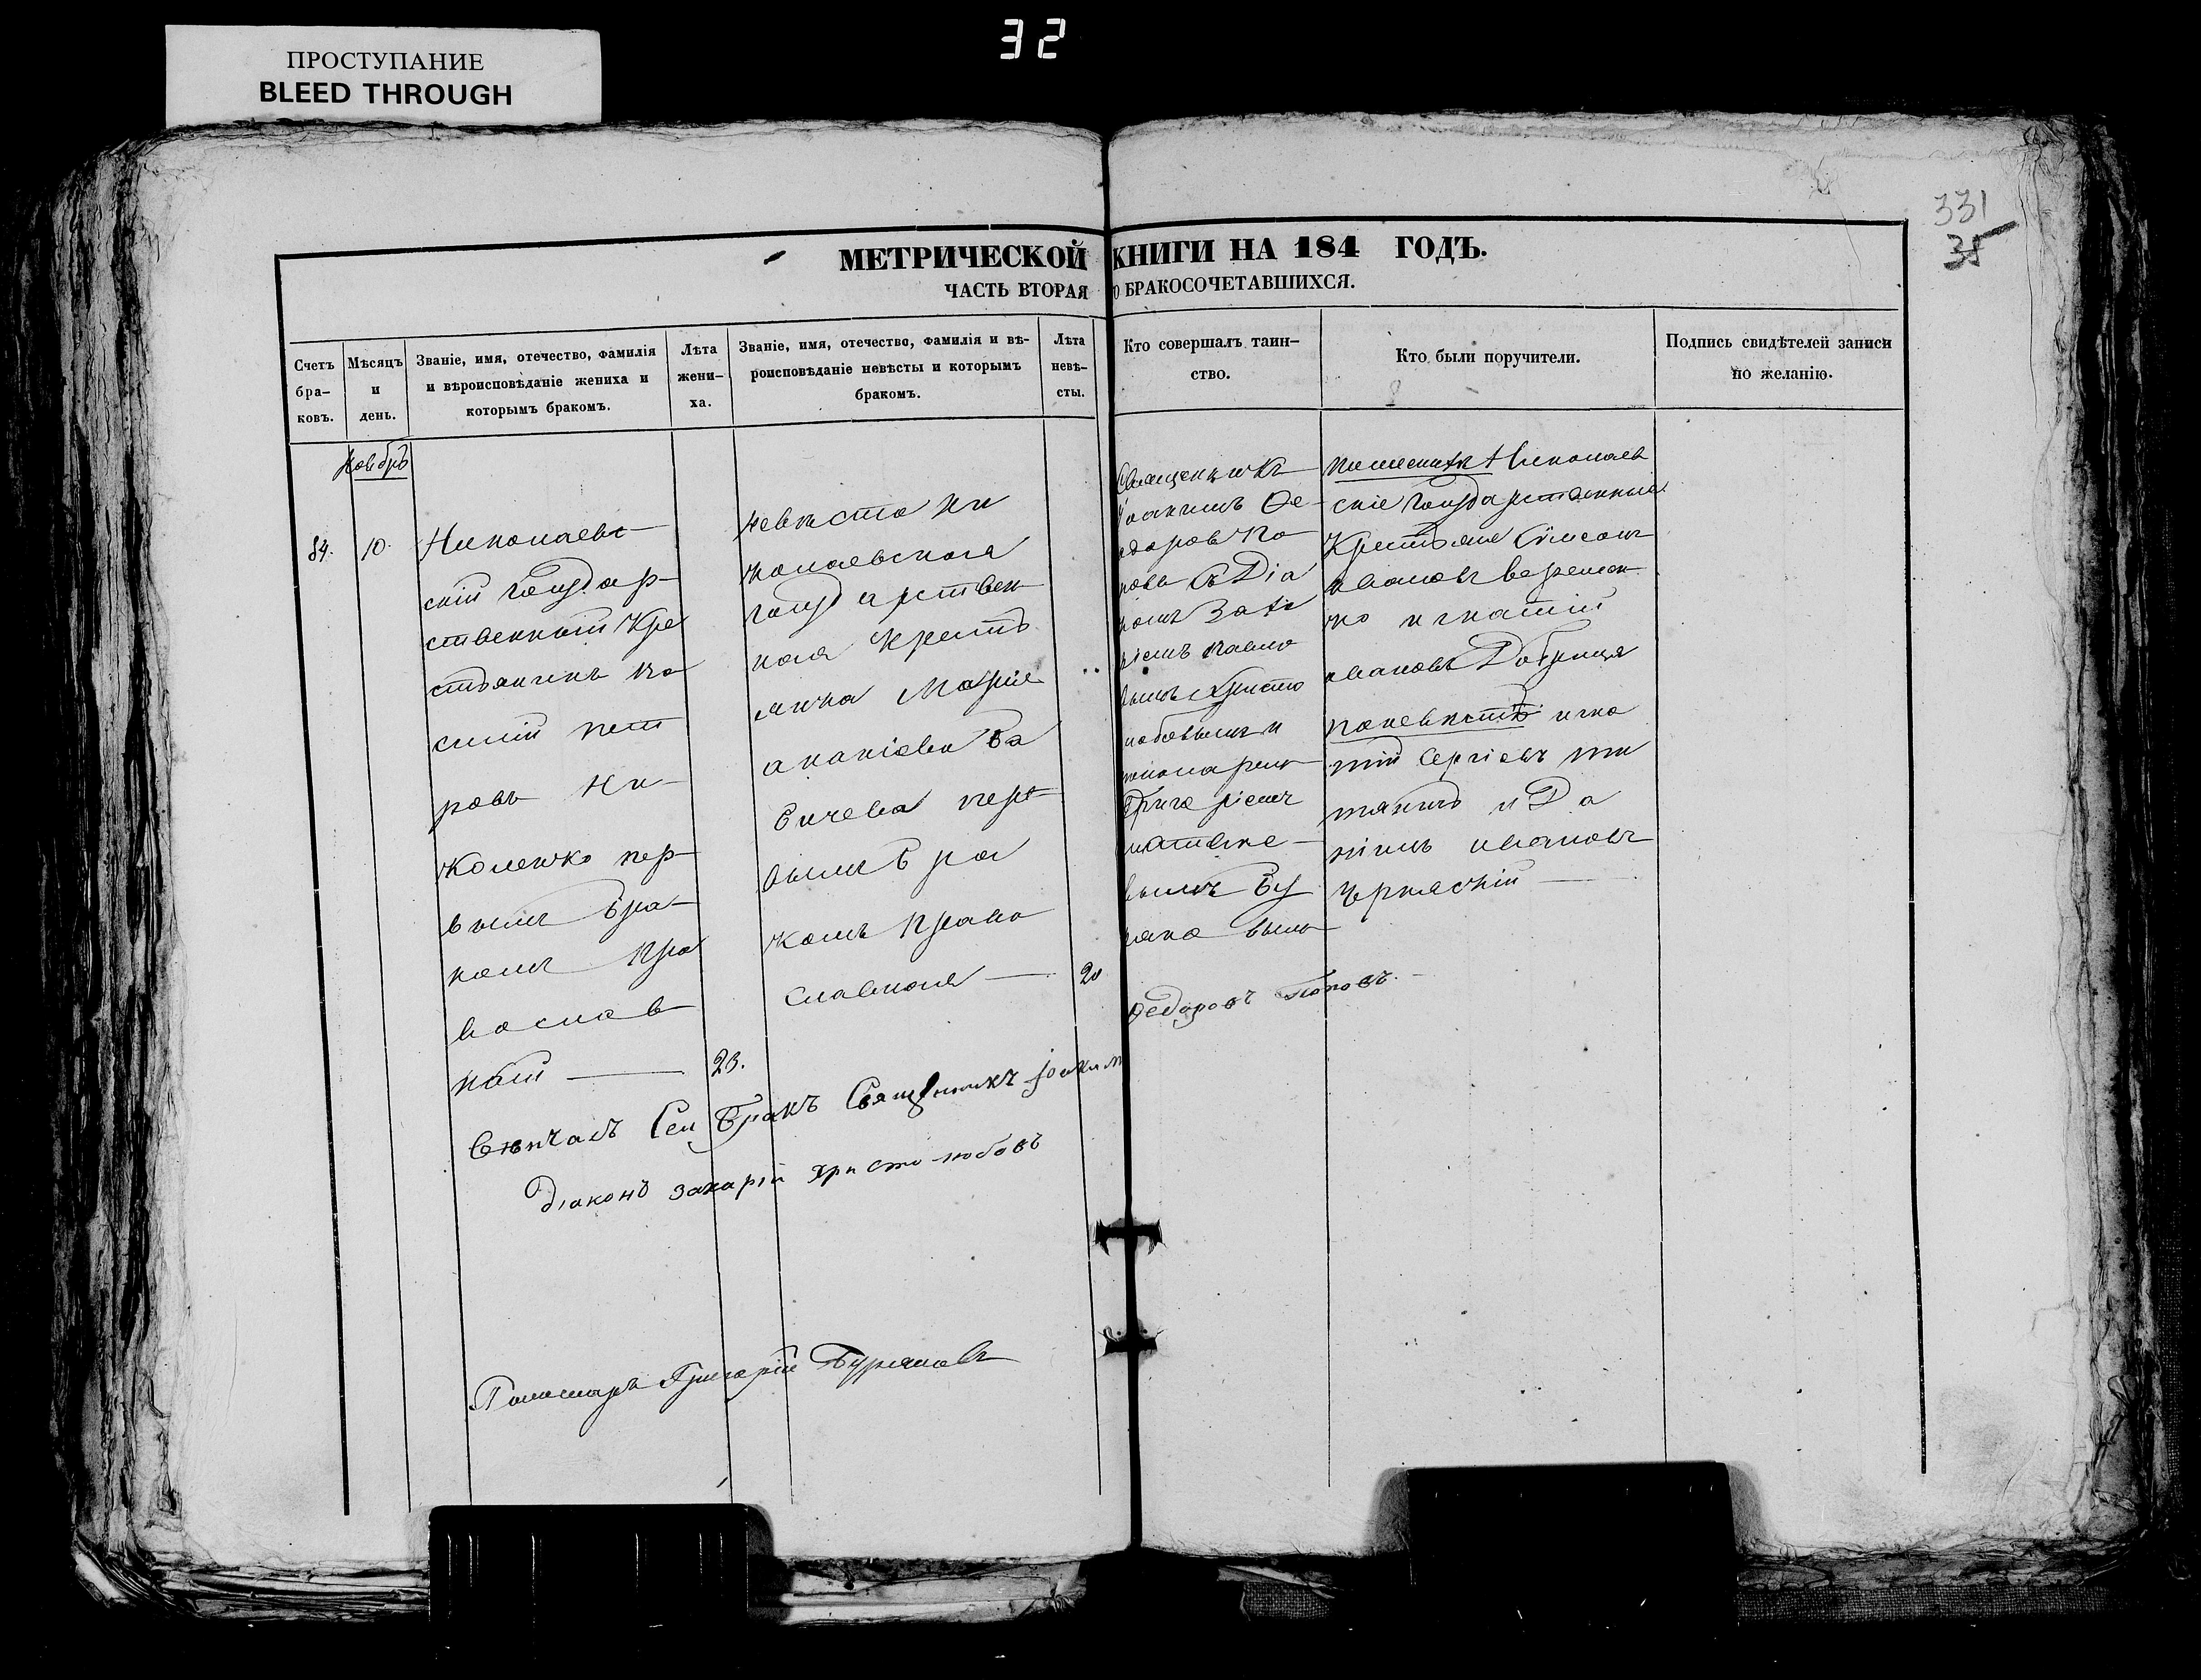 32
ПРОСТУПАНИЕ
BLEED THROUGH
331
35
МЕТРИЧЕСКОЙ КНИГИ НА 184 ГОДЪ.
ЧАСТЬ ВТОРАЯ О БРАКОСОЧЕТАВШИХСЯ.
Счетъ бра-
ковъ.
Мѣсяцъ
и
день.
Званіе, имя, отечество, фамилія
и вѣроисповѣданіе жениха и
которымъ бракомъ.
Лѣта
жени-
ха.
Званіе, имя, отечество, фамилія и вѣ-
роисповѣданіе невѣсты и которымъ
бракомъ.
Лѣта
невѣ-
сты.
Кто совершалъ таин-
ство.
Кто были поручители.
Подпись свидѣтелей записи
по желанію.
Ноябрь
84. 10.
Николаев-
скій Государ-
ственный Кре
стьянинъ Ва
силій Пет
ровъ Ни-
коленко пер-
вымъ бра-
комъ Пра
вослав
ный — 23.
Невѣста Ни
колаевская
государствен
ная крестья
янка Марія
Ананіева Ба
бичева пер-
вымъ бра
комъ Право
славная — 20
Священникъ
Іоакимъ Ѳе-
одоровъ По
повъ съ Діа
кономъ Заха
ріемъ Павло
вымъ Христо
любовымъ и
пономаремъ
Григоріемъ
Матвѣе-
вымъ Бу
ряковымъ
По женихѣ Николаев
скіе Государственные
Крестьяне Сѵмеонъ
Ивановъ
ко Игнатій
Ивановъ Добрица
по невѣстѣ Игна
тій Сергіевъ Ти
и Да
ніилъ Ивановъ
Чернявскій —
Вѣнчалъ Сей Бракъ Священникъ Іоакимъ Ѳедоровъ Поповъ.
Діаконъ Захарій Христолюбовъ
Пономарь Григорій Буряковъ